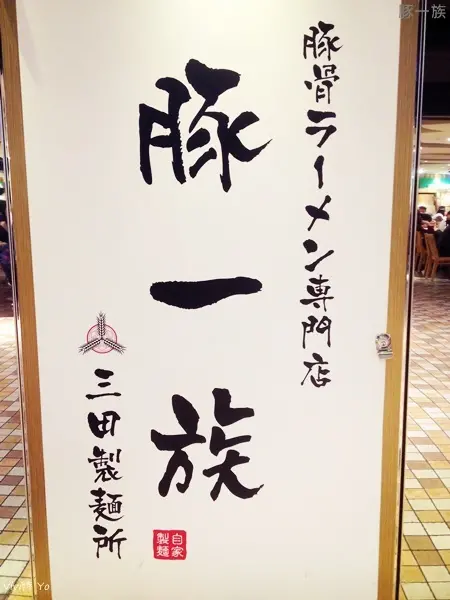 豚骨ラーメン専門店
豚一族
三田製麺所
自家製麺
豚一族